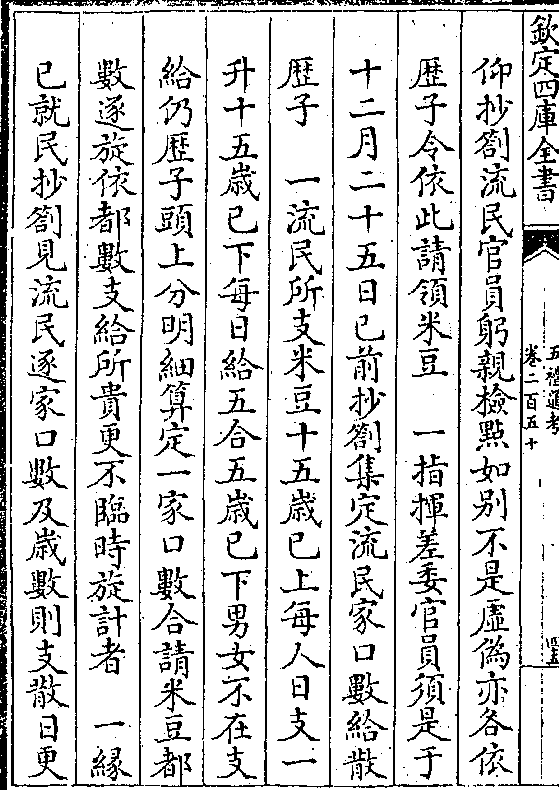 欽定四庫全書
五禮通考
卷二百五十
仰抄劄流民官員躬親檢點如别不是虛偽亦各依
歴子令依此請領米豆　一指揮差委官員須是于
十二月二十五日已前抄劄集定流民家口數給散
歴子　一流民所支米豆十五歲已上每人日支一
升十五歲已下每日給五合五歲已下男女不在支
給仍歴子頭上分明細算定一家口數合請米豆都
數逐旋依都數支給所貴更不臨時旋計者　一縁
已就民抄劄見流民逐家口數及歲數則支散日更